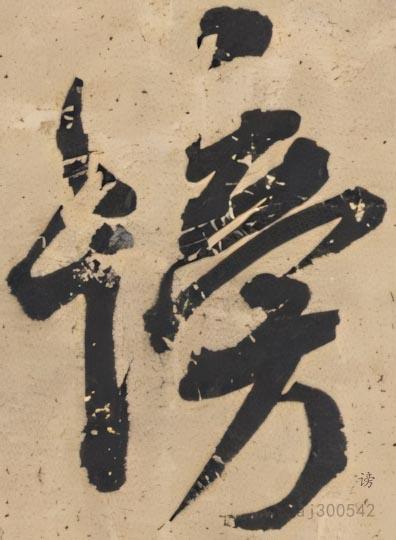 傍
谤
j300542